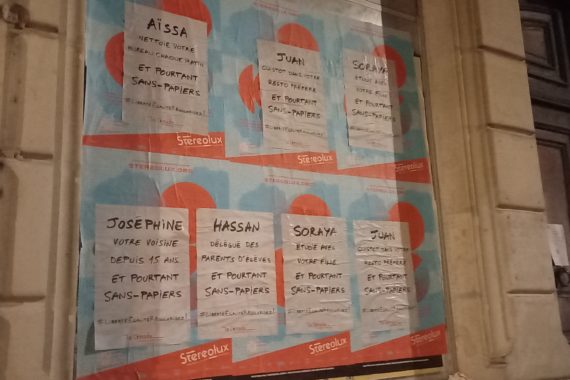 AÏSSA
NETTOIE VOTRE
BUREAU CHAQUE MATIN
ET POURTANT
SANS-PAPIERS
#LIBERTÉÉGALITÉRÉGULARISEZ!
JUAN
CUISTOT DANS VOTRE
RESTO PRÉFÉRÉ
ET POURTANT
SANS-PAPIERS
#LIBERTÉÉGALITÉRÉGULARISEZ!
SORAYA
ÉTUDIE AVEC
VOTRE FILLE
ET POURTANT
SANS-PAPIERS
#LIBERTÉÉGALITÉRÉGULARISEZ!
Stereolux
Stereolux
Stereolux
STEREOLUX.ORG
STEREOLUX.ORG
JOSÉPHINE
VOTRE VOISINE
DEPUIS 15 ANS
ET POURTANT
SANS-PAPIERS
#LIBERTÉÉGALITÉRÉGULARISEZ!
HASSAN
DÉLÉGUÉ DES
PARENTS D'ÉLÈVES
ET POURTANT
SANS-PAPIERS
#LIBERTÉÉGALITÉRÉGULARISEZ!
SORAYA
ÉTUDIE AVEC
VOTRE FILLE
ET POURTANT
SANS-PAPIERS
#LIBERTÉÉGALITÉRÉGULARISEZ!
JUAN
CUISTOT DANS VOTRE
RESTO PRÉFÉRÉ
ET POURTANT
SANS-PAPIERS
#LIBERTÉÉGALITÉRÉGULARISEZ!
Stereolux
Stereolux
Stereolux